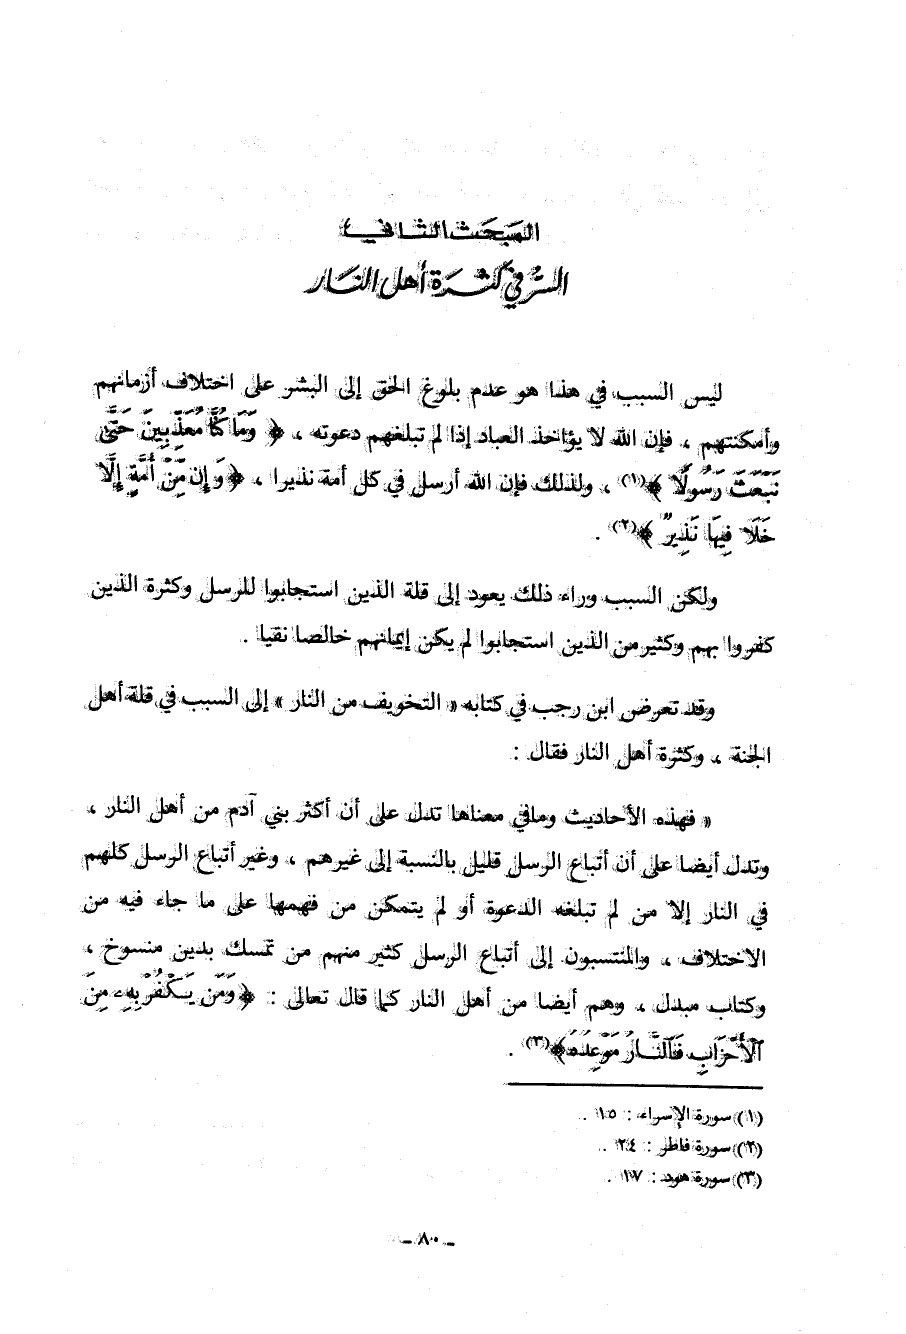 المبحث الثاني
السر في كثرة أهل النار
ليس السبب في هذا هو عدم بلوغ الحق إلى البشر على اختلاف أزمانهم
وأمكنتهم ، فإن الله لا يؤاخذ العباد إذا لم تبلغهم دعوته ، ﴿ وَمَا كُنَّا مُعَذِّبِينَ حَتَّىٰ
نَبْعَثَ رَسُولًا ﴾(١) ، ولذلك فإن الله أرسل في كل أمة نذيرا ، ﴿ وَإِن مِّنْ أُمَّةٍ إِلَّا
خَلَا فِيهَا نَذِيرٌ ﴾(٢) .
ولكن السبب وراء ذلك يعود إلى قلة الذين استجابوا للرسل وكثرة الذين
كفروا بهم وكثير من الذين استجابوا لم يكن إيمانهم خالصا نقيا .
وقد تعرض ابن رجب في كتابه « التخويف من النار » إلى السبب في قلة أهل
الجنة ، وكثرة أهل النار فقال :
« فهذه الأحاديث ومافي معناها تدل على أن أكثر بني آدم من أهل النار ،
وتدل أيضا على أن أتباع الرسل قليل بالنسبة إلى غيرهم ، وغير أتباع الرسل كلهم
في النار إلا من لم تبلغه الدعوة أو لم يتمكن من فهمها على ما جاء فيه من
الاختلاف ، والمنتسبون إلى أتباع الرسل كثير منهم من تمسك بدين منسوخ ،
وكتاب مبدل ، وهم أيضا من أهل النار كما قال تعالى : ﴿ وَمَن يَكْفُرْ بِهِۦ مِنَ
ٱلْأَحْزَابِ فَٱلنَّارُ مَوْعِدُهُ ﴾(٣) .
(١) سورة الإسراء : ١٥ .
(٢) سورة فاطر : ٢٤ .
(٣) سورة هود : ١٧ .
- ٨٠ -